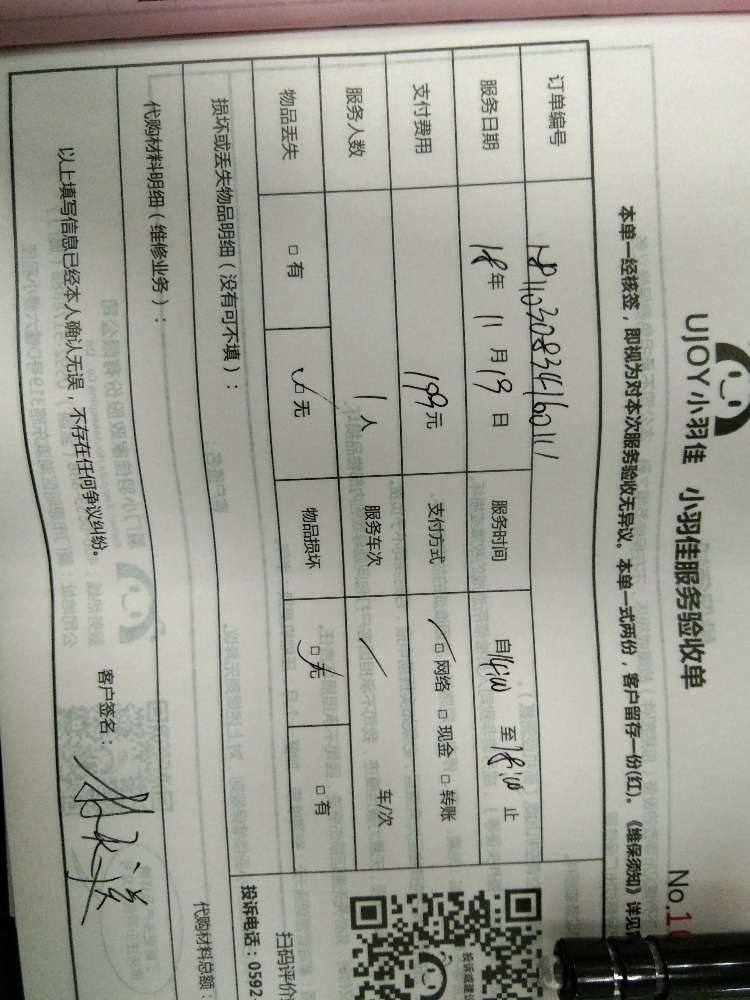 UJOY小羽佳 小羽佳服务验收单
No.1
本单一经核签，即视为对本次服务验收无异议。本单一式两份，客户留存一份(红)。《维保须知》详见
订单编号
服务日期 18年 11月19日 服务时间 自14:00 至18:00止
支付费用 199元 支付方式 ☑网络 □现金 □转账
服务人数 1人 服务车次 / 车/次
物品丢失 □有 ☑无 物品损坏 ☑无 □有
损坏或丢失物品明细（没有可不填）：
代购材料明细（维修业务）：
代购材料总额：
以上填写信息已经本人确认无误，不存在任何争议纠纷。
客户签名：
扫码评价
投诉电话：0592
UJOY